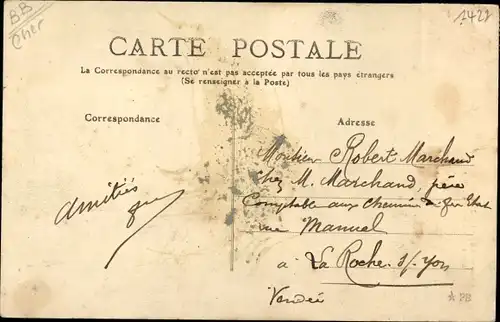 BB
Cher
1422
CARTE POSTALE
La Correspondance au recto n'est pas acceptée par tous les pays étrangers
(Se renseigner à la Poste)
Correspondance
Adresse
amitiés
Monsieur Robert Marchand
chez M. Marchand, père
Comptable aux Chemins de fer Etat
rue Manuel
a La Roche s/ Yon
Vendée
PB